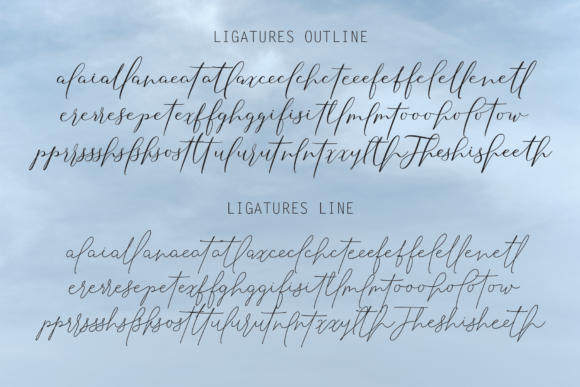 LIGATURES OUTLINE
alaiallanaeatatlaxceelchcteeefeffelellenetl
erererresepetexffghggifisitllmlmtooohofotow
pprrssshsfshsosttttulurutnlntxxylthTheshisheeth
LIGATURES LINE
alaiallanaeatatlaxceelchcteeefeffelellenetl
erererresepetexffghggifisitllmlmtooohofotow
pprrssshsfshsosttttulurutnlntxxylthTheshisheeth